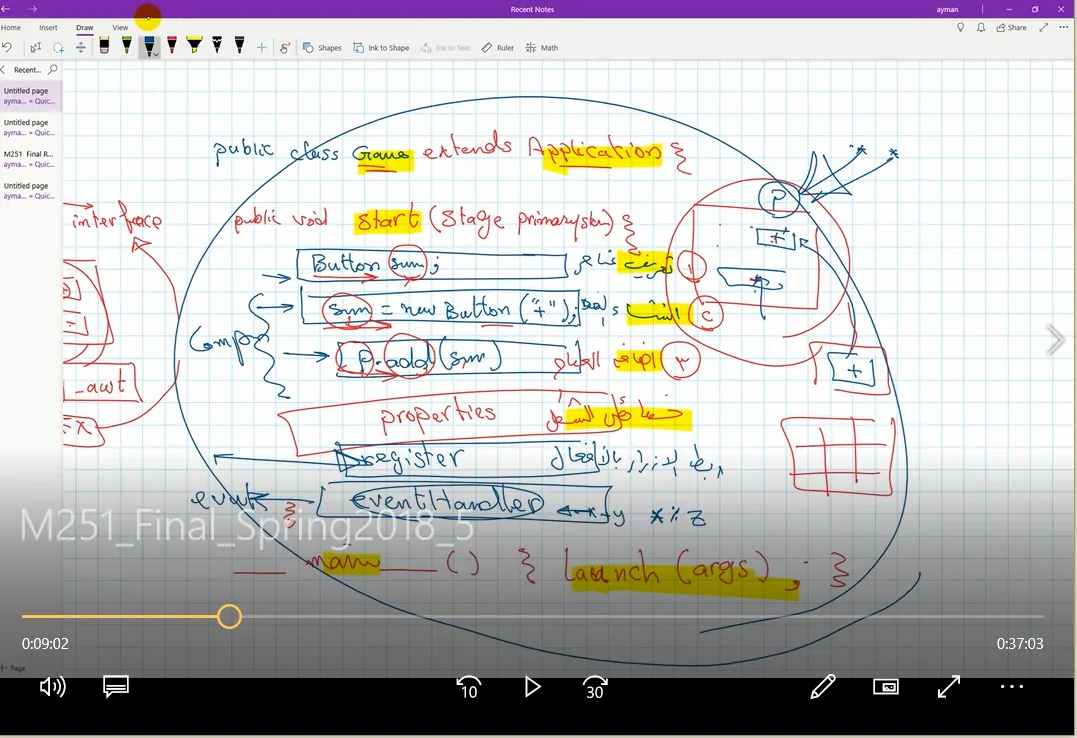 Recent Notes
ayman
Home Insert Draw View
Share
Shapes Ink to Shape Ink to Text Ruler Math
Recent...
Untitled page
ayma... » Quic...
Untitled page
ayma... » Quic...
M251 Final R...
ayma... » Quic...
Untitled page
ayma... » Quic...
public class Game extends Application {
interface
public void start (Stage primary) {
P
+
Button sum; تعريف ١
sum = new Button ("+");
P.add (sum) اضافة ٣
+
Compon
awt
properties
FX
register ربط الازرار بالافعال
event eventHandler x + y x % z
}
M251_Final_Spring2018_5
main () { launch (args) ; }
0:09:02
0:37:03
+ Page
10 30